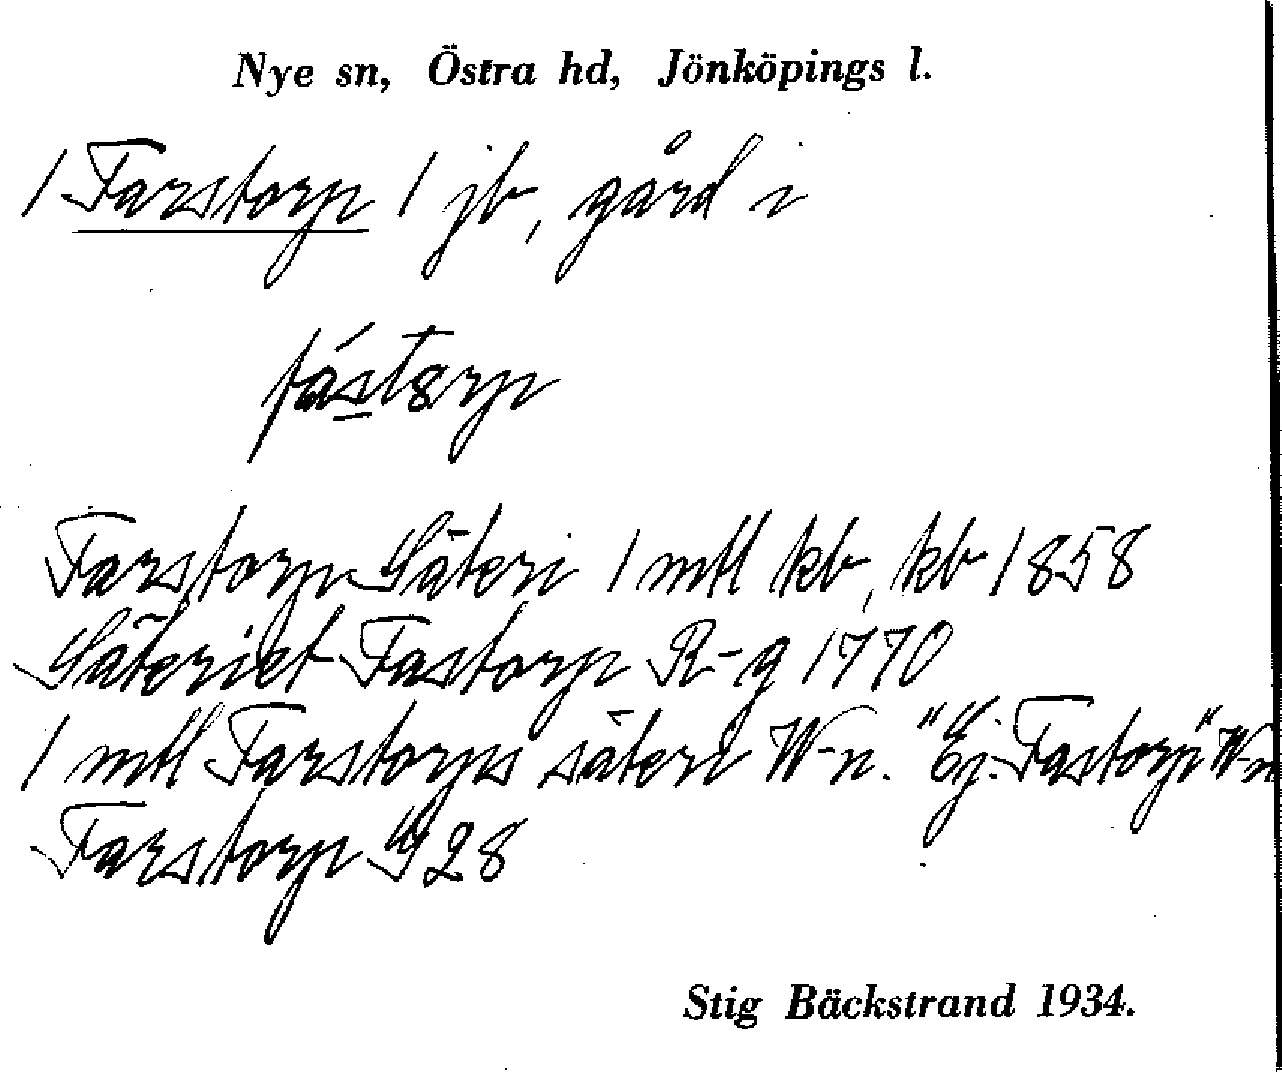 Nye sn, Östra hd, Jönköpings l.
1 Farstorp 1 jb, gård i
fástorp
Farstorp Säteri 1 mtl kb, kb 1858
Säteriet Fastorp R-g 1770
1 mtl Farstorps säteri W-n. "Ej. Fastorp" W-n
Farstorp G 28
Stig Bäckstrand 1934.